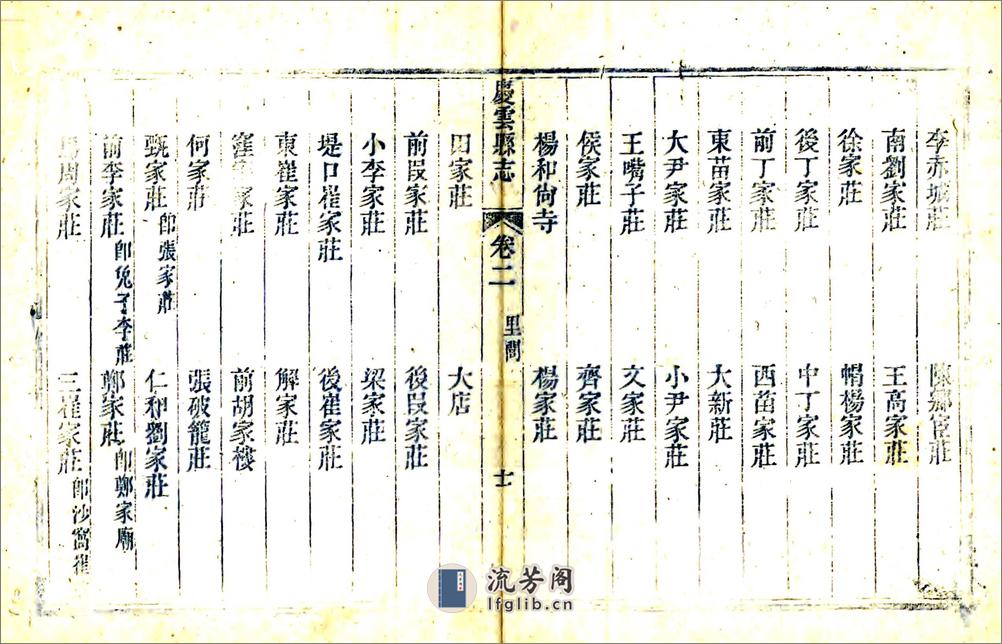 李赤城莊 陳鄉宦莊
南劉家莊 王高家莊
徐家莊 帽楊家莊
後丁家莊 中丁家莊
前丁家莊 西苗家莊
東苗家莊 大新莊
大尹家莊 小尹家莊
王嘴子莊 文家莊
侯家莊 齊家莊
楊和尙寺 楊家莊
慶雲縣志 卷二 里閭 十
田家莊 大店
前段家莊 後段家莊
小李家莊 梁家莊
堤口崔家莊 後崔家莊
東崔家莊 解家莊
窪 家莊 前胡家樓
何家莊 張破籠莊
甄家莊 卽張家莊 仁和劉家莊
前李家莊 卽兔子李莊 鄭家莊 卽鄭家廟
周家莊 三崔家莊 卽沙窩崔
流芳阁
lfglib.cn